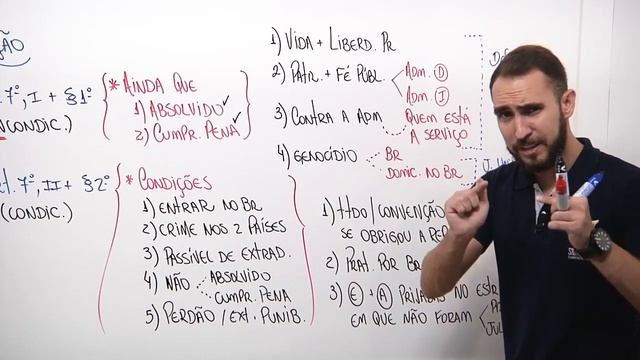 ÇÃO
. 7º, I + § 1º
CONDIC.)
t. 7º, II + § 2º
(CONDIC.)
* AINDA QUE
1) ABSOLVIDO ✓
2) CUMPR. PENA ✓
* CONDIÇÕES
1) ENTRAR NO BR
2) CRIME NOS 2 PAÍSES
3) PASSÍVEL DE EXTRAD.
4) NÃO ABSOLVIDO
CUMPR. PENA
5) PERDÃO / EXT. PUNIB.
1) VIDA + LIBERD. PR
2) PATR. + FÉ PÚBL. ADM. D
ADM. I
3) CONTRA A ADM QUEM ESTÁ
A SERVIÇO
4) GENOCÍDIO BR
DOMIC. NO BR
1) TTDO / CONVENÇÃO
SE OBRIGOU A REP
2) PRAT. POR BR
3) E + A PRIVADAS NO ESTR
EM QUE NÃO FORAM
JUL